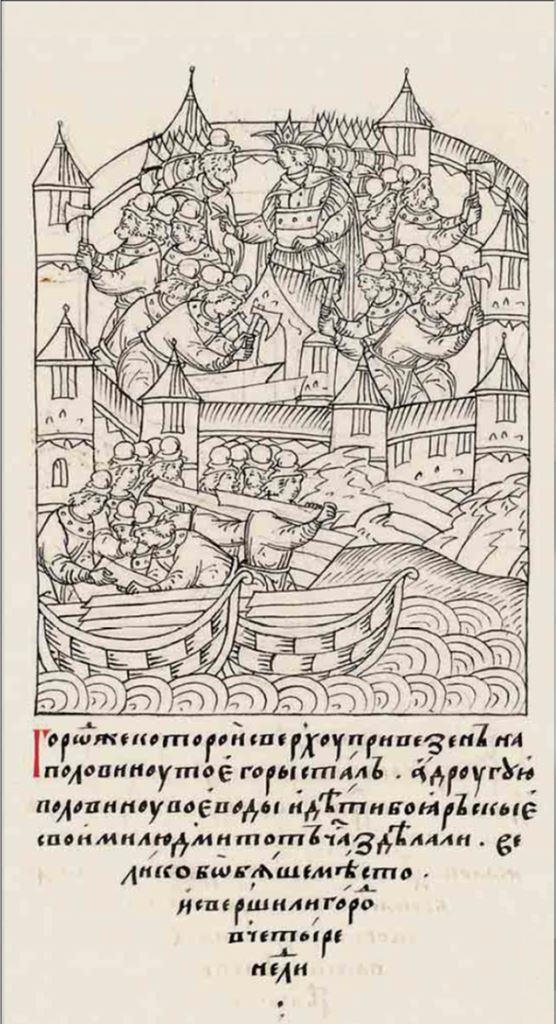 Горѡⷣ же которои сверхоу привезенъ на
половиноу тоє горы сталъ . а дроугꙋю
половиноу воєводы и дѣти боꙗрьскыє
своими людми тотъчаⷭ здѣлали . ве
лико бѡ бѧше мѣсто .
и свершили гороⷣ
в четыре
неⷣли